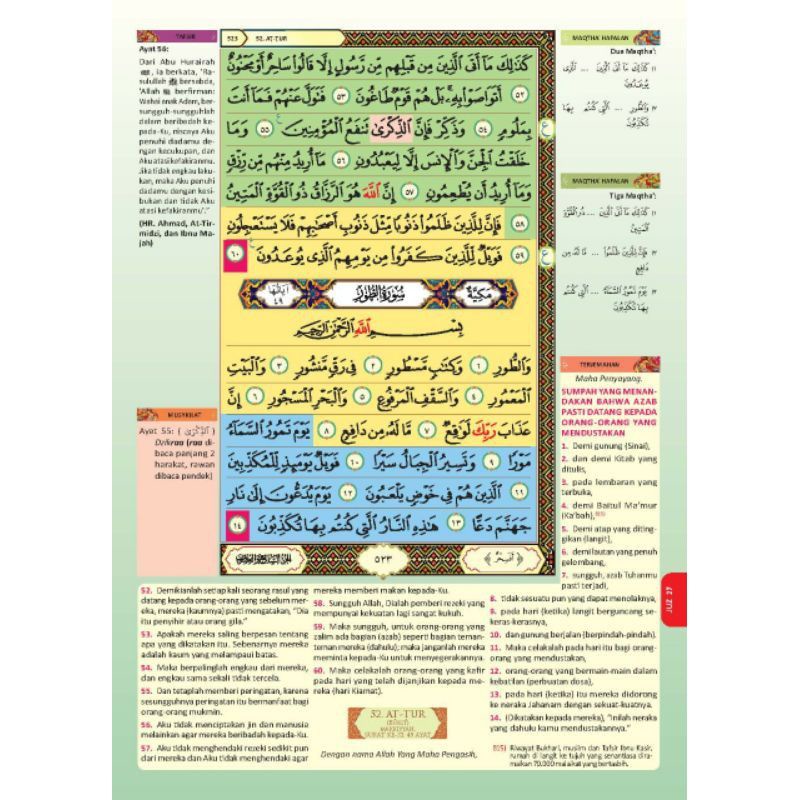 TAFSIR
Ayat 56:
Dari Abu Hurairah
ﷺ, ia berkata, 'Ra-
sulullah ﷺ bersabda,
'Allah ﷻ berfirman:
Wahai anak Adam, ber-
sungguh-sungguhlah
dalam beribadah ke-
pada-Ku, niscaya Aku
penuhi dadamu de-
ngan kecukupan, dan
Aku atasi kefakiranmu.
Jika tidak engkau laku-
kan, maka Aku penuhi
dadamu dengan kesi-
bukan dan tidak Aku
atasi kefakiranmu'."
(HR. Ahmad, At-Tir-
midzi, dan Ibnu Ma-
jah)
MUSYKILAT
Ayat 55: ( الذِّكْرَىٰ )
Dzikraa (raa di-
baca panjang 2
harakat, rawan
dibaca pendek)
523 52. AT-TUR
كَذَٰلِكَ مَآ أَتَى ٱلَّذِينَ مِن قَبْلِهِم مِّن رَّسُولٍ إِلَّا قَالُوا۟ سَاحِرٌ أَوْ مَجْنُونٌ
٥٢ أَتَوَاصَوْا۟ بِهِۦ بَلْ هُمْ قَوْمٌ طَاغُونَ ٥٣ فَتَوَلَّ عَنْهُمْ فَمَآ أَنتَ
بِمَلُومٍ ٥٤ وَذَكِّرْ فَإِنَّ ٱلذِّكْرَىٰ تَنفَعُ ٱلْمُؤْمِنِينَ ٥٥ وَمَا
خَلَقْتُ ٱلْجِنَّ وَٱلْإِنسَ إِلَّا لِيَعْبُدُونِ ٥٦ مَآ أُرِيدُ مِنْهُم مِّن رِّزْقٍ
وَمَآ أُرِيدُ أَن يُطْعِمُونِ ٥٧ إِنَّ ٱللَّهَ هُوَ ٱلرَّزَّاقُ ذُو ٱلْقُوَّةِ ٱلْمَتِينُ
٥٨ فَإِنَّ لِلَّذِينَ ظَلَمُوا۟ ذَنُوبًا مِّثْلَ ذَنُوبِ أَصْحَٰبِهِمْ فَلَا يَسْتَعْجِلُونِ
٥٩ فَوَيْلٌ لِّلَّذِينَ كَفَرُوا۟ مِن يَوْمِهِمُ ٱلَّذِى يُوعَدُونَ ٦٠
مَكِّيَّة سُورَةُ الطُّورِ آيَاتُهَا ٤٩
بِسْمِ ٱللَّهِ ٱلرَّحْمَٰنِ ٱلرَّحِيمِ
وَٱلطُّورِ ١ وَكِتَٰبٍ مَّسْطُورٍ ٢ فِى رَقٍّ مَّنشُورٍ ٣ وَٱلْبَيْتِ
ٱلْمَعْمُورِ ٤ وَٱلسَّقْفِ ٱلْمَرْفُوعِ ٥ وَٱلْبَحْرِ ٱلْمَسْجُورِ ٦ إِنَّ
عَذَابَ رَبِّكَ لَوَٰقِعٌ ٧ مَّا لَهُۥ مِن دَافِعٍ ٨ يَوْمَ تَمُورُ ٱلسَّمَآءُ
مَوْرًا ٩ وَتَسِيرُ ٱلْجِبَالُ سَيْرًا ١٠ فَوَيْلٌ يَوْمَئِذٍ لِّلْمُكَذِّبِينَ
١١ ٱلَّذِينَ هُمْ فِى خَوْضٍ يَلْعَبُونَ ١٢ يَوْمَ يُدَعُّونَ إِلَىٰ نَارِ
جَهَنَّمَ دَعًّا ١٣ هَٰذِهِ ٱلنَّارُ ٱلَّتِى كُنتُم بِهَا تُكَذِّبُونَ ١٤
٥٢٣
MAQTHA' HAFALAN
Dua Maqtha':
١) كَذَٰلِكَ مَآ أَتَى الَّذِينَ ... الَّذِي
يُوعَدُونَ
٢) وَالطُّورِ ... الَّتِي كُنتُم بِهَا
تُكَذِّبُونَ
MAQTHA' HAFALAN
Tiga Maqtha':
١) كَذَٰلِكَ مَآ أَتَى الَّذِينَ ... ذُو الْقُوَّةِ
الْمَتِينُ
٢) فَإِنَّ لِلَّذِينَ ظَلَمُوا ... مَا لَهُ مِن
دَافِعٍ
٣) يَوْمَ تَمُورُ السَّمَآءُ ... الَّتِي كُنتُم
بِهَا تُكَذِّبُونَ
TERJEMAHAN
Maha Penyayang.
SUMPAH YANG MENAN-
DAKAN BAHWA AZAB
PASTI DATANG KEPADA
ORANG-ORANG YANG
MENDUSTAKAN
1. Demi gunung (Sinai),
2. dan demi Kitab yang
ditulis,
3. pada lembaran yang
terbuka,
4. demi Baitul Ma'mur
(Ka'bah),815)
5. Demi atap yang diting-
gikan (langit),
6. demi lautan yang penuh
gelombang,
7. sungguh, azab Tuhanmu
pasti terjadi,
JUZ 27
52. Demikianlah setiap kali seorang rasul yang
datang kepada orang-orang yang sebelum mer-
eka, mereka (kaumnya) pasti mengatakan, "Dia
itu penyihir atau orang gila."
53. Apakah mereka saling berpesan tentang
apa yang dikatakan itu. Sebenarnya mereka
adalah kaum yang melampaui batas.
54. Maka berpalinglah engkau dari mereka,
dan engkau sama sekali tidak tercela.
55. Dan tetaplah memberi peringatan, karena
sesungguhnya peringatan itu bermanfaat bagi
orang-orang mukmin.
56. Aku tidak menciptakan jin dan manusia
melainkan agar mereka beribadah kepada-Ku.
57. Aku tidak menghendaki rezeki sedikit pun
dari mereka dan Aku tidak menghendaki agar
mereka memberi makan kepada-Ku.
58. Sungguh Allah, Dialah pemberi rezeki yang
mempunyai kekuatan lagi sangat kukuh.
59. Maka sungguh, untuk orang-orang yang
zalim ada bagian (azab) seperti bagian teman-
teman mereka (dahulu); maka janganlah mereka
meminta kepada-Ku untuk menyegerakannya.
60. Maka celakalah orang-orang yang kafir
pada hari yang telah dijanjikan kepada me-
reka (hari Kiamat).
52. AT-TUR
(BUKIT)
MAKKIYYAH,
SURAT KE-52: 49 AYAT
Dengan nama Allah Yang Maha Pengasih,
8. tidak sesuatu pun yang dapat menolaknya,
9. pada hari (ketika) langit berguncang se-
keras-kerasnya,
10. dan gunung berjalan (berpindah-pindah).
11. Maka celakalah pada hari itu bagi orang-
orang yang mendustakan,
12. orang-orang yang bermain-main dalam
kebatilan (perbuatan dosa),
13. pada hari (ketika) itu mereka didorong
ke neraka Jahanam dengan sekuat-kuatnya.
14. (Dikatakan kepada mereka), "Inilah neraka
yang dahulu kamu mendustakannya."
815) Riwayat Bukhari, muslim dan Tafsir Ibnu Kasir,
rumah di langit ke tujuh yang senantiasa dira-
maikan 70.000 malaikat yang bertasbih.